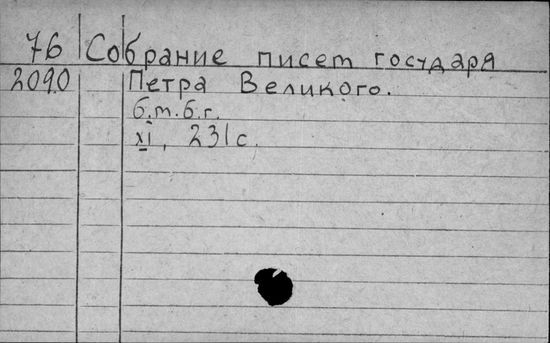 76 Собрание писем государя
2090 Петра Великого.
б.т.б.г.
XI, 231 с.